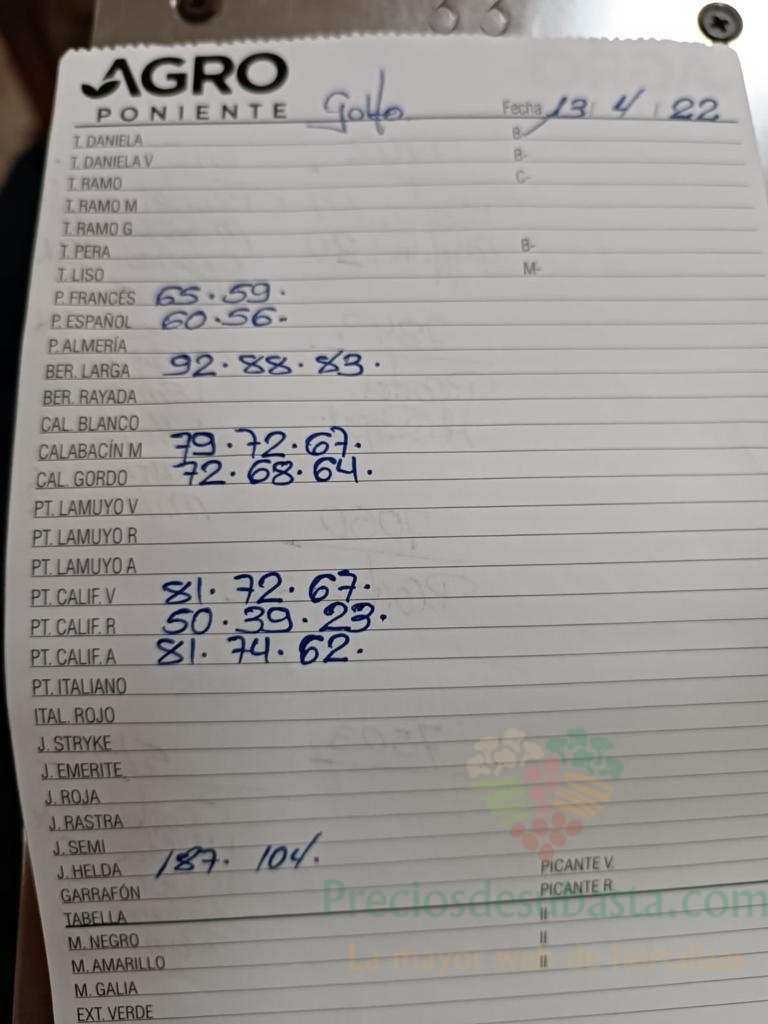 AGRO
PONIENTE Golfo Fecha 13 / 4 / 22
T. DANIELA B-
T. DANIELA V B-
T. RAMO C-
T. RAMO M
T. RAMO G
T. PERA B-
T. LISO M-
P. FRANCÉS 65 · 59 ·
P. ESPAÑOL 60 · 56 ·
P. ALMERÍA
BER. LARGA 92 · 88 · 83 ·
BER. RAYADA
CAL. BLANCO
CALABACÍN M 79 · 72 · 67 ·
CAL. GORDO 72 · 68 · 64 ·
PT. LAMUYO V
PT. LAMUYO R
PT. LAMUYO A
PT. CALIF. V 81 · 72 · 67 ·
PT. CALIF. R 50 · 39 · 23 ·
PT. CALIF. A 81 · 74 · 62 ·
PT. ITALIANO
ITAL. ROJO
J. STRYKE
J. EMERITE
J. ROJA
J. RASTRA
J. SEMI
J. HELDA 187 · 104 · PICANTE V.
GARRAFÓN PICANTE R.
Preciosdesubasta.com
TABELLA II
M. NEGRO II
La mayor web de hortalizas
M. AMARILLO II
M. GALIA
EXT. VERDE